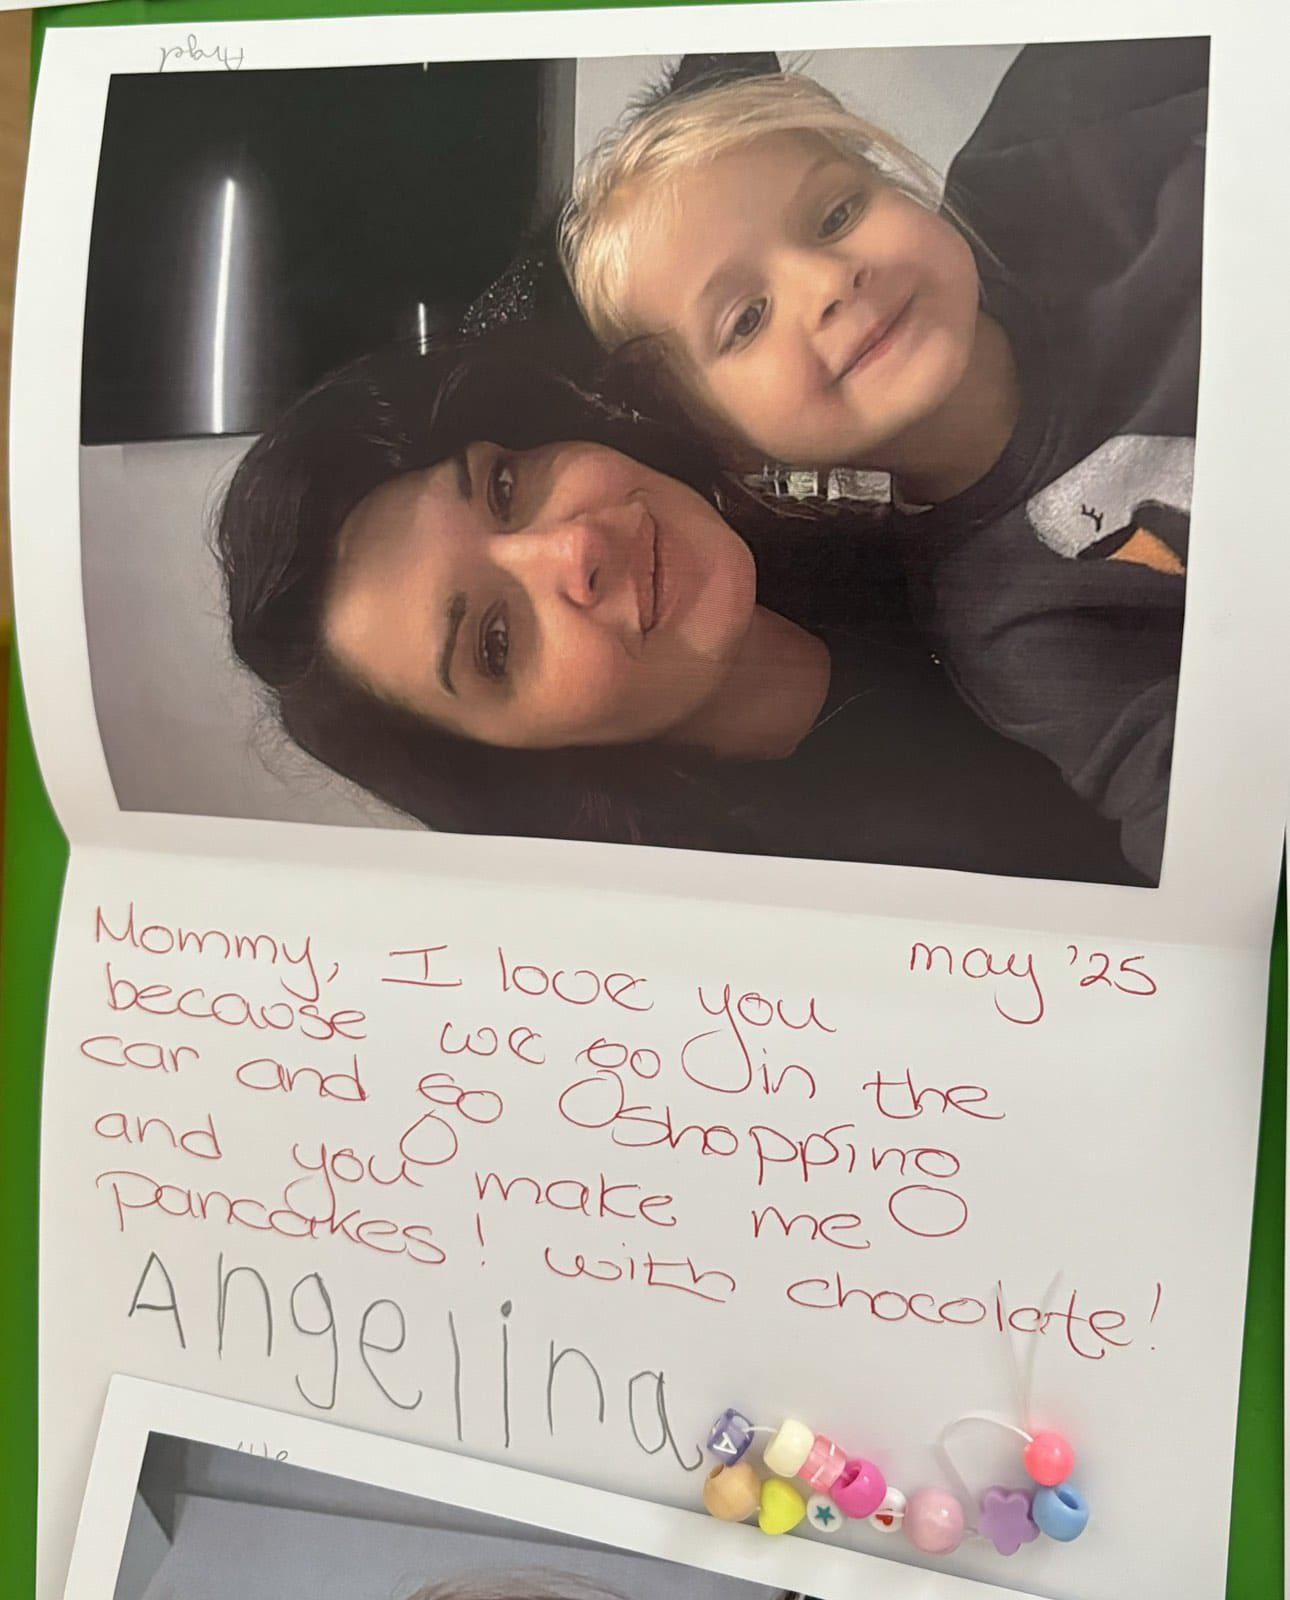 Angel
may '25
Mommy, I love you
because we go in the
car and go shopping
and you make me
pancakes! with chocolate!
Angelina
A